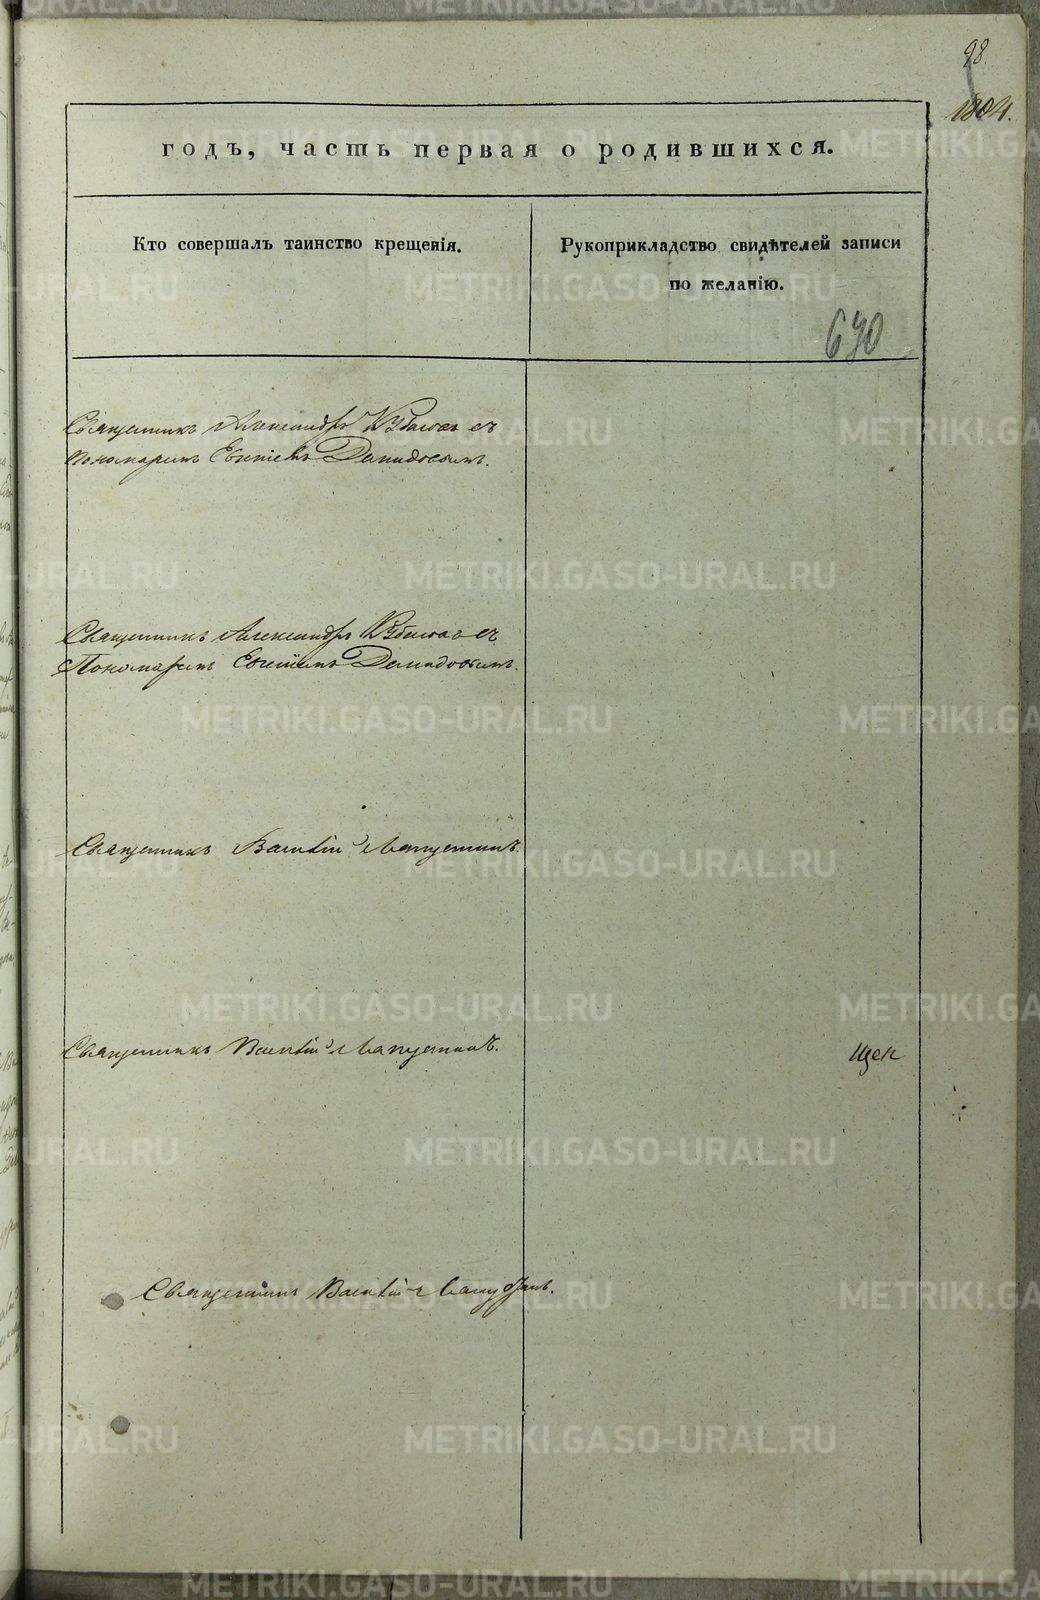 98.
1804.
годъ, часть первая о родившихся.
Кто совершалъ таинство крещенія.
Рукоприкладство свидѣтелей записи
по желанію.
690
Священникъ Александръ съ
Пономаремъ Евгеніемъ Давидовымъ.
Священникъ Александръ съ
Пономаремъ Евгеніемъ Давидовымъ.
Священникъ Василій
Священникъ Василій
Щек
Священникъ Василій
METRIKI.GASO-URAL.RU